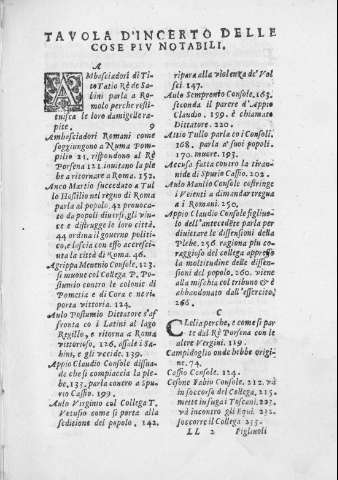 TAVOLA D'INCERTO DELLE
COSE PIV NOTABILI.
A
AMbasciadori di Ti-
to Tatio Rè de Sa-
bini parla a Ro-
molo perche resti-
tuisca le loro damigelle ra-
pite. 9
Ambasciadori Romani come
soggiungono a Numa Pom-
pilio 21. rispondono al Rè
Porsena 121. incitano la ple
be a ritornare a Roma. 152.
Anco Martio succeduto a Tul
lo Hostilio nel regno di Roma
parla al popolo. 42 provoca-
to da popoli diversi, gli vin-
ce e distrugge le loro città.
44 ordina il governo politi-
co, e lascia con esso accresciu-
ta la città di Roma. 46.
Agrippa Menenio Console. 123.
si muove col Collega P. Po-
stumio contro le colonie di
Pometia e di Cora e ne ri-
porta vittoria. 124.
Aulo Postumio Dittatore s'af
fronta co i Latini al lago
Regillo, e ritorna a Roma
vittorioso, 126. assale i Sa-
bini, e gli vccide. 139.
Appio Claudio Console dissua-
de che si compiaccia la ple-
be. 133. parla contro a Spu-
rio Cassio. 199.
Aulo Virginio col Collega T.
Vetusio come si porta alla
seditione del popolo. 142.
ripara alla violenza de' Vol
sci 147.
Aulo Sempronio Console. 163.
seconda il parere d'Appio
Claudio. 199. è chiamato
Dittatore. 220.
Attio Tullo parla co i Consoli.
168. parla a' suoi popoli.
170. muore. 193.
Accusa fatta contro la tiran-
nide di Spurio Cassio. 202.
Aulo Manlio Console costringe
i Veienti a dimandar tregua
a i Romani. 250.
Appio Claudio Console figliuo-
lo dell'antecedete parla per
divietare le dissensioni della
Plebe. 256 ragiona piu co-
raggioso del collega appresso
la moltitudine delle dissen-
sioni del popolo. 260. viene
alla mischia col tribuno & è
abbandonato dall'essercito,
266.
C
CLelia perche, e come si par
te dal Rè Porsena con le
altre Vergini. 119.
Campidoglio onde hebbe origi-
ne. 74.
Cassio Console. 124.
Cesone Fabio Console. 212. và
in soccorso del Collega. 215.
mette in fuga i Toscani. 223.
và incontro gli Equi. 232.
soccorre il Collega 233.
LL 2 Figliuoli